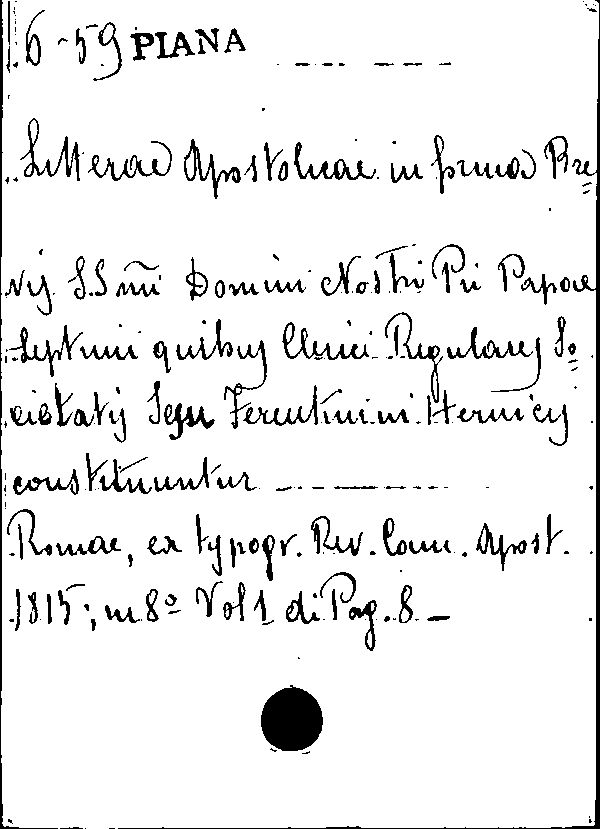 6-59 PIANA
Litterae Apostolicae in forma Bre=
vis S.S mi Domini Nostri Pii Papae
Septimi quibus Clerici Regulares So=
cietatis Jesu Ferentini in Hernicis
constituuntur
Romae, ex typogr. Rev. Cam. Apost.
1815; in 8º Vol 1 di Pag. 8 -